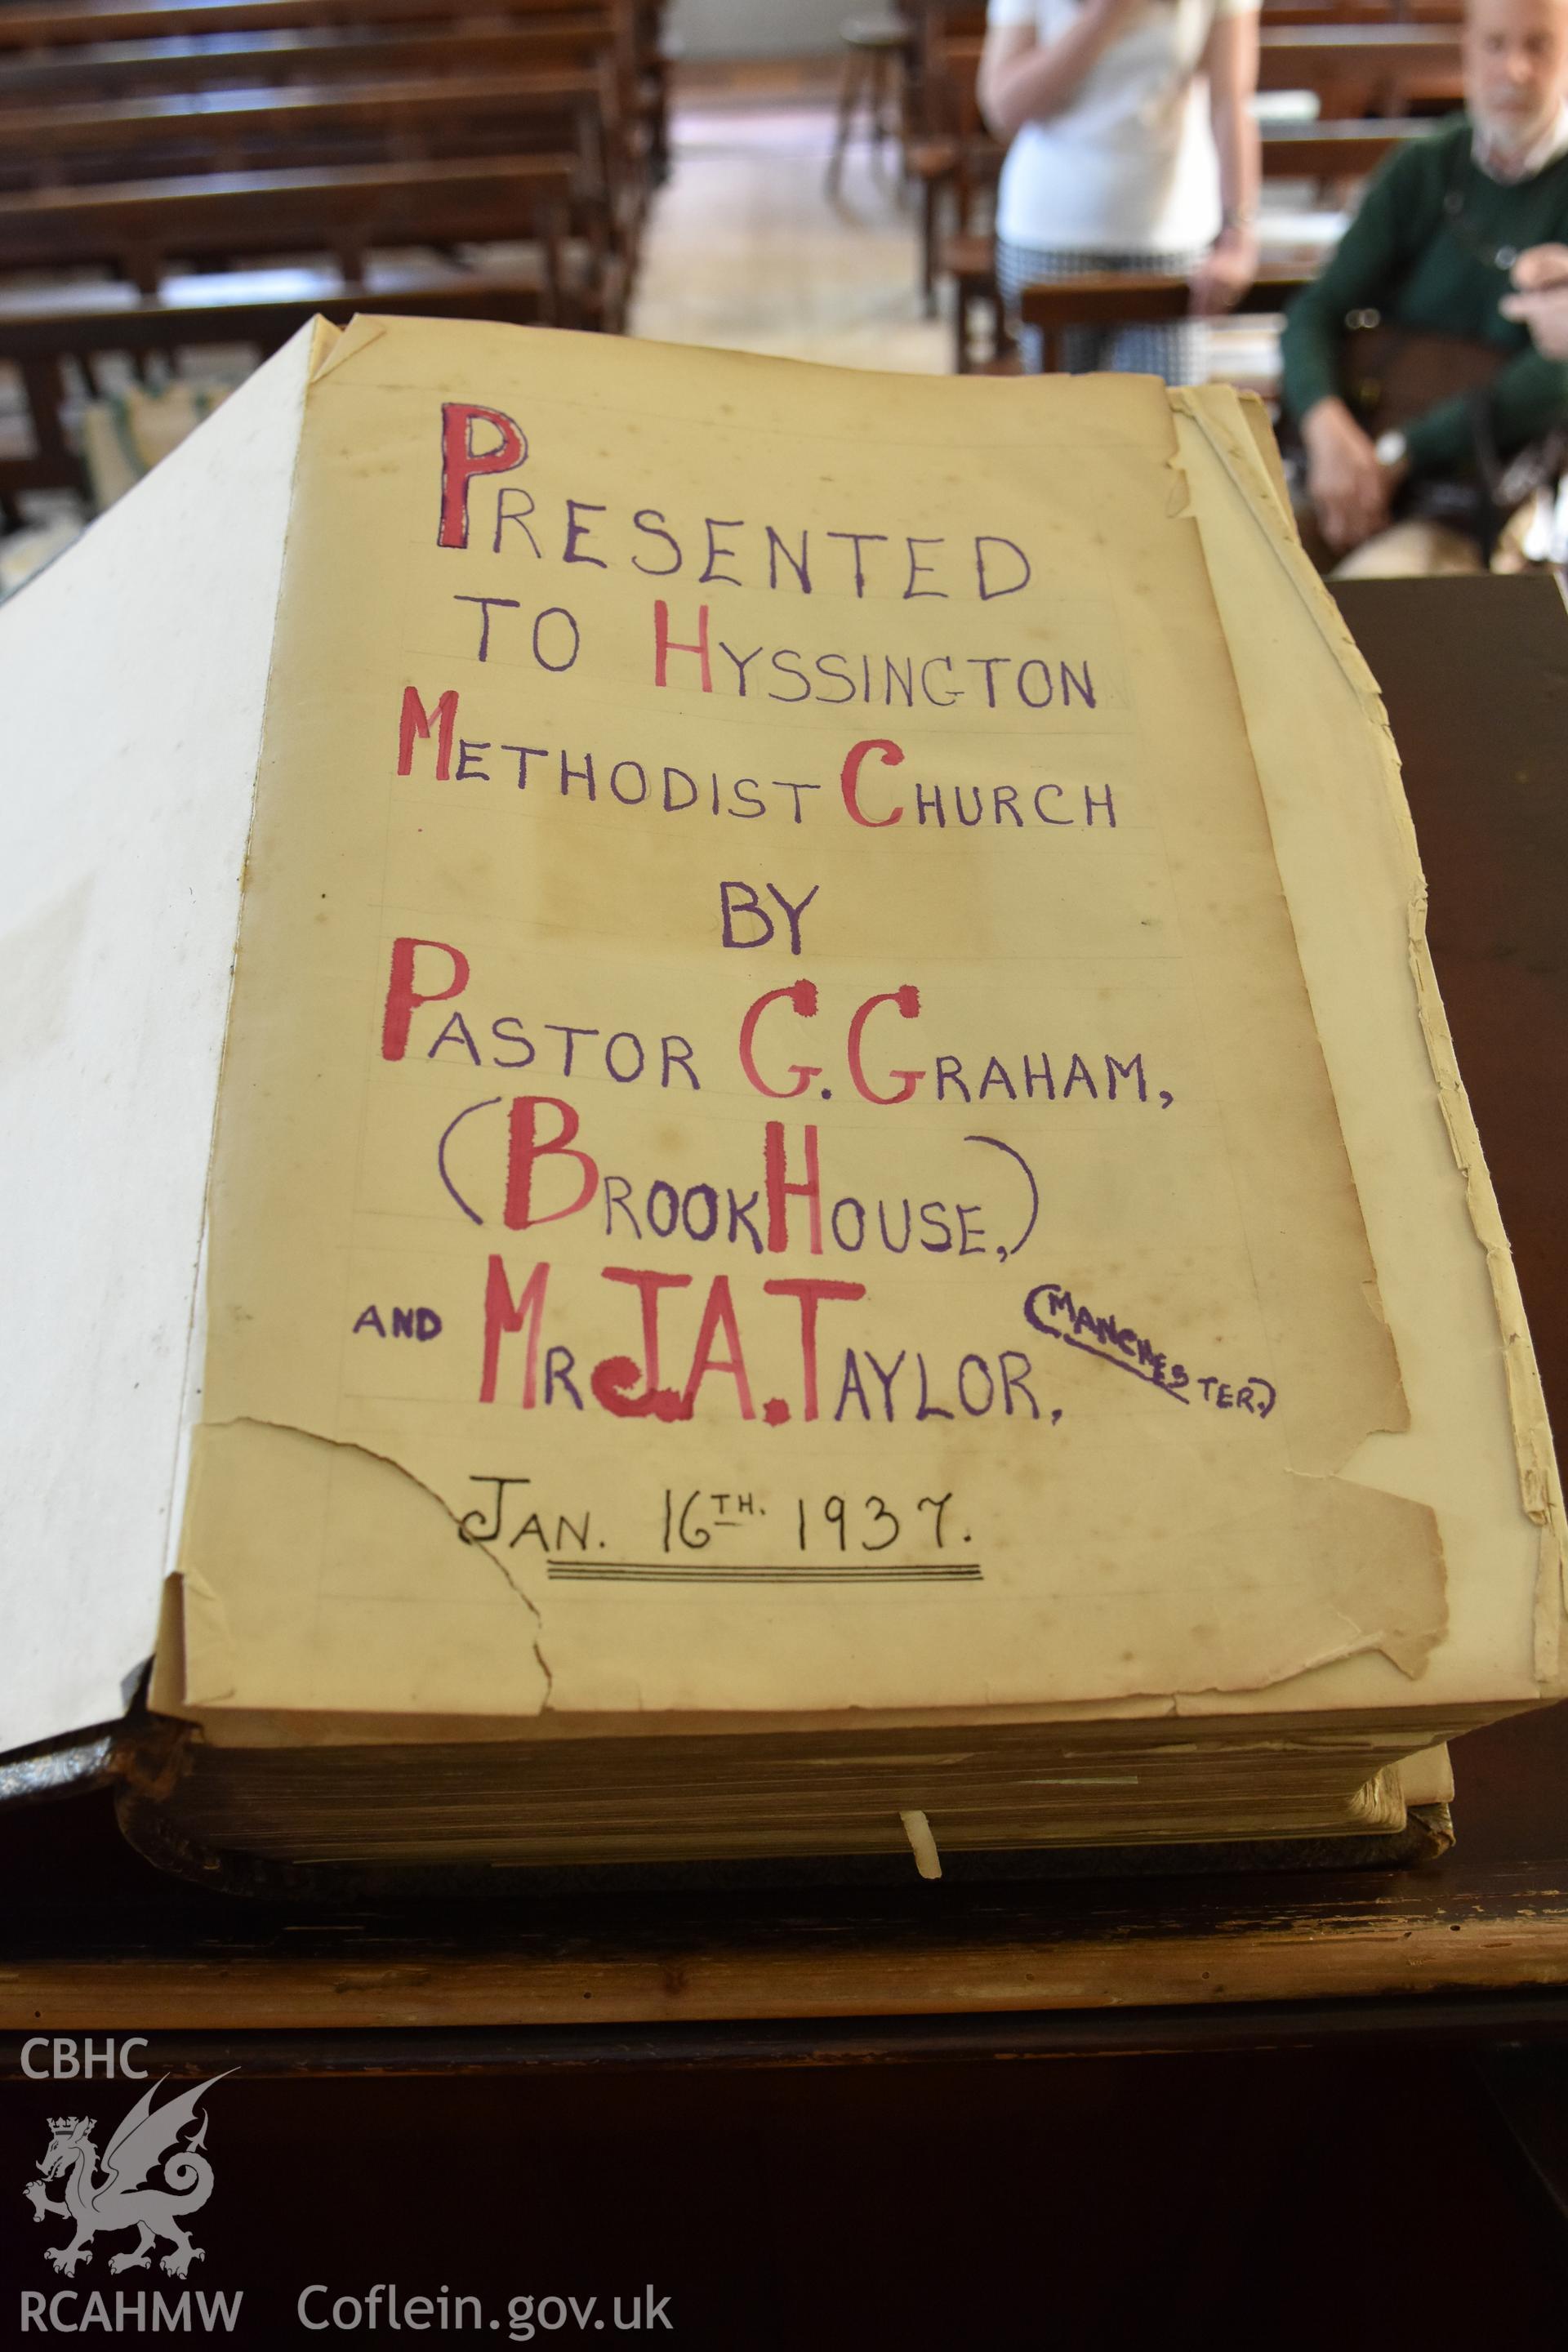 PRESENTED
TO HYSSINGTON
METHODIST CHURCH
BY
PASTOR G. GRAHAM,
(BROOKHOUSE,)
AND MR J.A. TAYLOR. (MANCHESTER.)
JAN. 16TH. 1937.
CBHC
RCAHMW Coflein.gov.uk